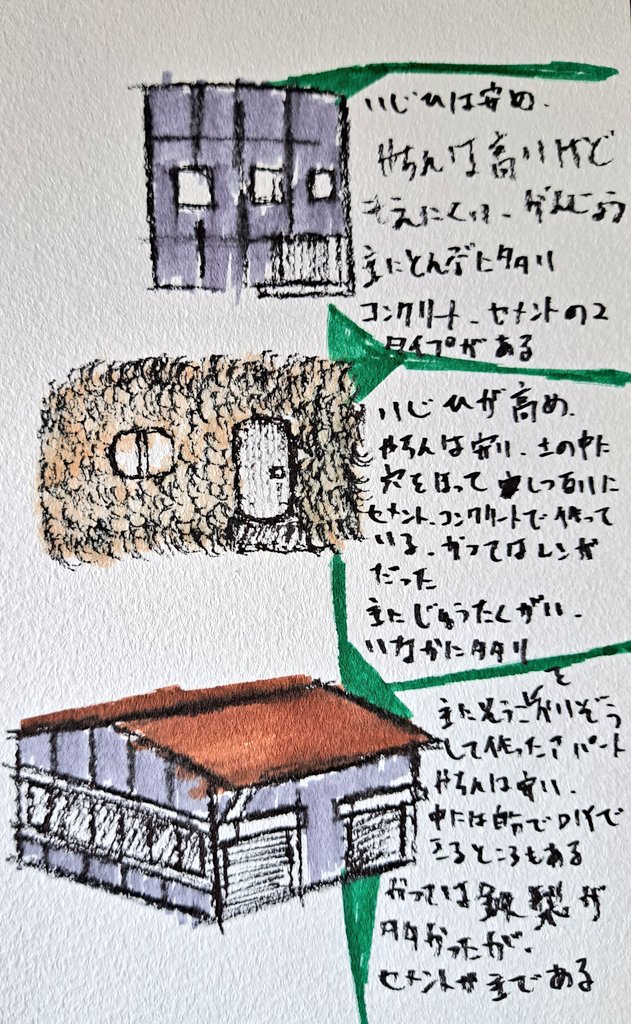 いじひは安め.
やちんは高いけど
もえにくい、がんじょう
主にとんぷにタタい
コンクリート、セメントの2
タイプがある
いじひが高め.
やちんは安い、土の中に
穴をほって しつ
セメント、コンクリートで作って
いる、かつてはレンガ
だった
主にじゅうたくがい、
いなかにタタい
主にそうこをかいぞう
して作ったアパート
やちんは安い、
中には自分でDIYで
きるところもある
かつては鉄製が
タタかったが、
セメントが主である